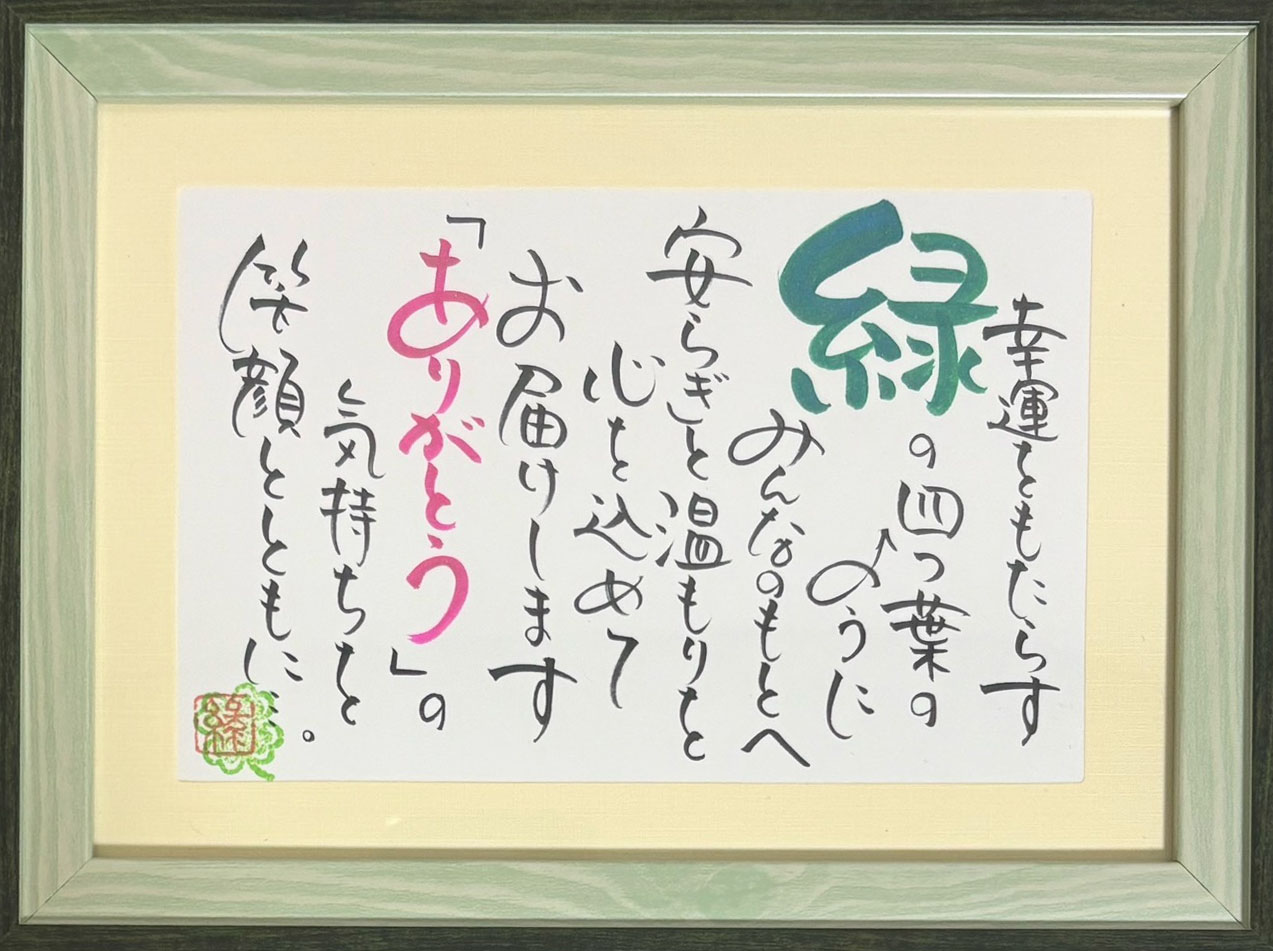 幸運をもたらす
緑の四つ葉の
ように
みんなのもとへ
安らぎと温もりを
心を込めて
お届けします
「ありがとう」の
気持ちを
笑顔とともに…。
緑